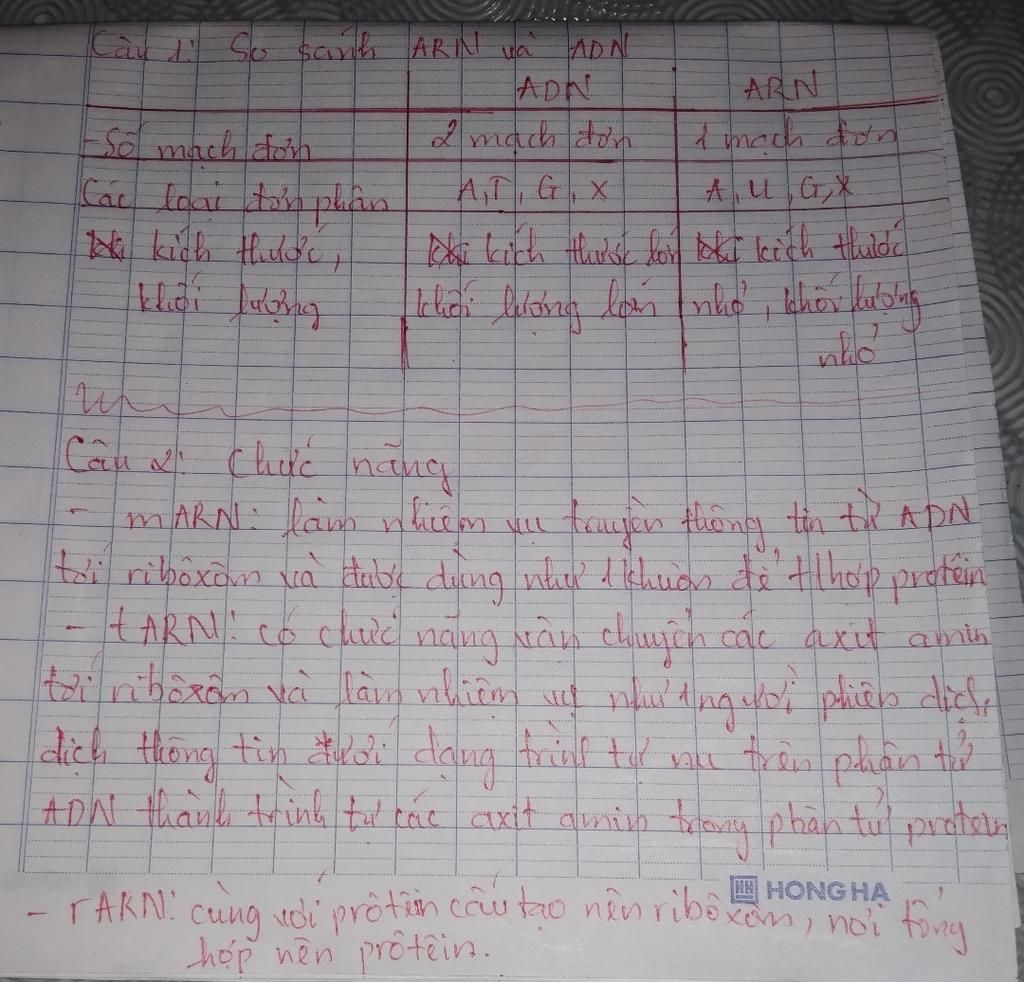 Câu 1: So sánh ARN và ADN
ADN ARN
- Số mạch đơn 2 mạch đơn 1 mạch đơn
Các loại đơn phân A, T, G, X A, U, G, X
kích thước, kích thước lớn kích thước
khối lượng khối lượng lớn nhỏ, khối lượng
nhỏ
Câu 2: Chức năng
- mARN: làm nhiệm vụ truyền thông tin từ ADN
tới ribôxôm và được dùng như 1 khuôn để t/hợp protêin
- tARN: có chức năng vận chuyển các axit amin
tới ribôxôm và làm nhiệm vụ như 1 người phiên dịch,
dịch thông tin dưới dạng trình tự nu trên phân tử
ADN thành trình tự các axit amin trong phân tử protein
HONG HA
- rARN: cùng với prôtêin cấu tạo nên ribôxôm, nơi tổng
hợp nên prôtêin.